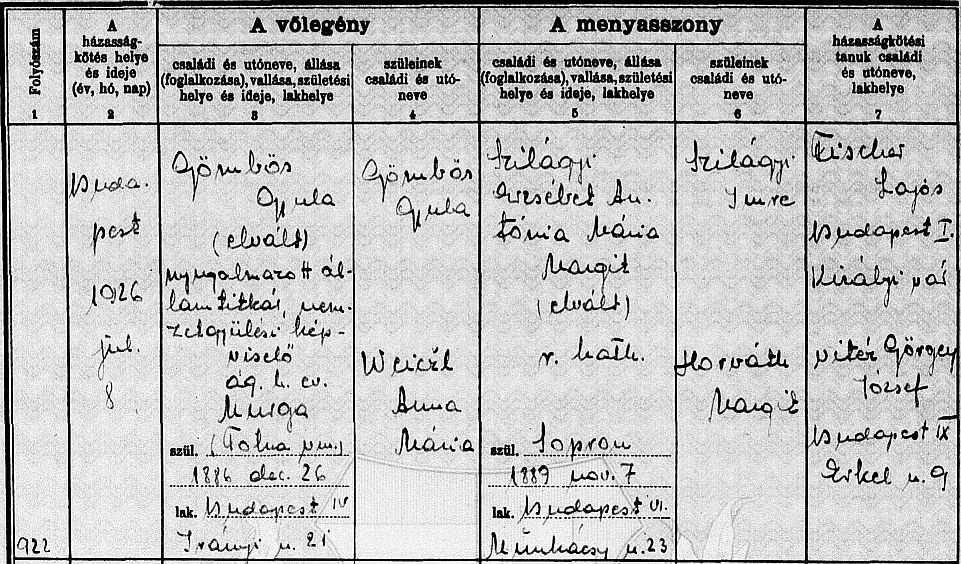 Folyószám
1
A
házasság-
kötés helye
és ideje
(év, hó, nap)
2
A vőlegény
családi és utóneve, állása
(foglalkozása), vallása, születési
helye és ideje, lakhelye
3
szüleinek
családi és utó-
neve
4
A menyasszony
családi és utóneve, állása
(foglalkozása), vallása, születési
helye és ideje, lakhelye
5
szüleinek
családi és utó-
neve
6
A
házasságkötési
tanuk családi
és utóneve,
lakhelye
7
922
Buda-
pest
1926
júl.
8
Gömbös
Gyula
(elvált)
nyugalmazott ál-
lamtitkár, nem-
zetgyülési kép-
viselő
ág. h. ev.
Murga
szül. (Tolna vm.)
1886 dec. 26
lak. Budapest IV
Irányi u. 21
Gömbös
Gyula
Weiczl
Anna
Mária
Szilágyi
Erzsébet An-
tónia Mária
Margit
(elvált)
r. kath.
szül. Sopron
1889 nov. 7
lak. Budapest VI.
Munkácsy u. 23
Szilágyi
Imre
Horváth
Margit
Fischer
Lajos
Budapest I.
Királyi vár
vitéz Görgey
József
Budapest IX
Erkel u. 9